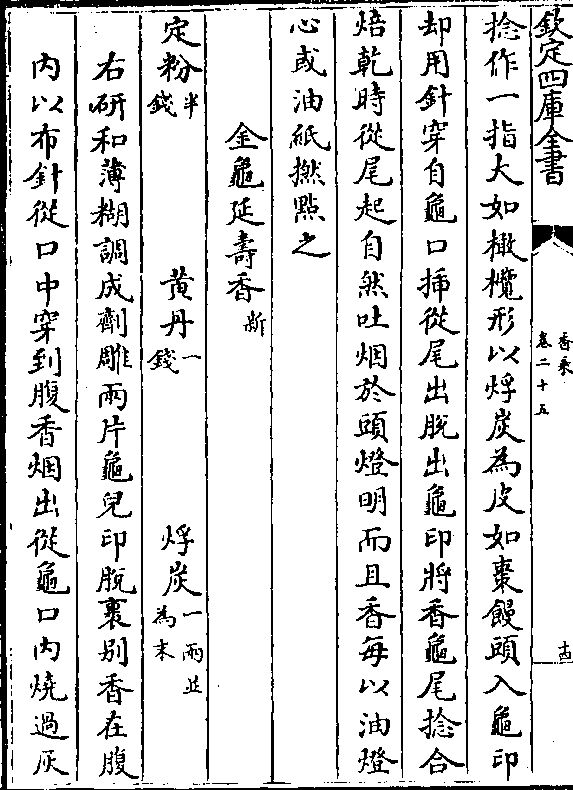 欽定四庫全書
香乘
卷二十五
十四
捻作一指大如橄欖形以烰炭為皮如棗饅頭入龜印
却用針穿自龜口插從尾出脱出龜印將香龜尾捻合
焙乾時從尾起自然吐烟於頭燈明而且香每以油燈
心或油紙撚點之
金龜延壽香 新
定粉半錢 黄丹一錢 烰炭一兩並為末
右研和薄糊調成劑雕兩片龜兒印脱裹别香在腹
内以布針從口中穿到腹香烟出從龜口内燒過灰